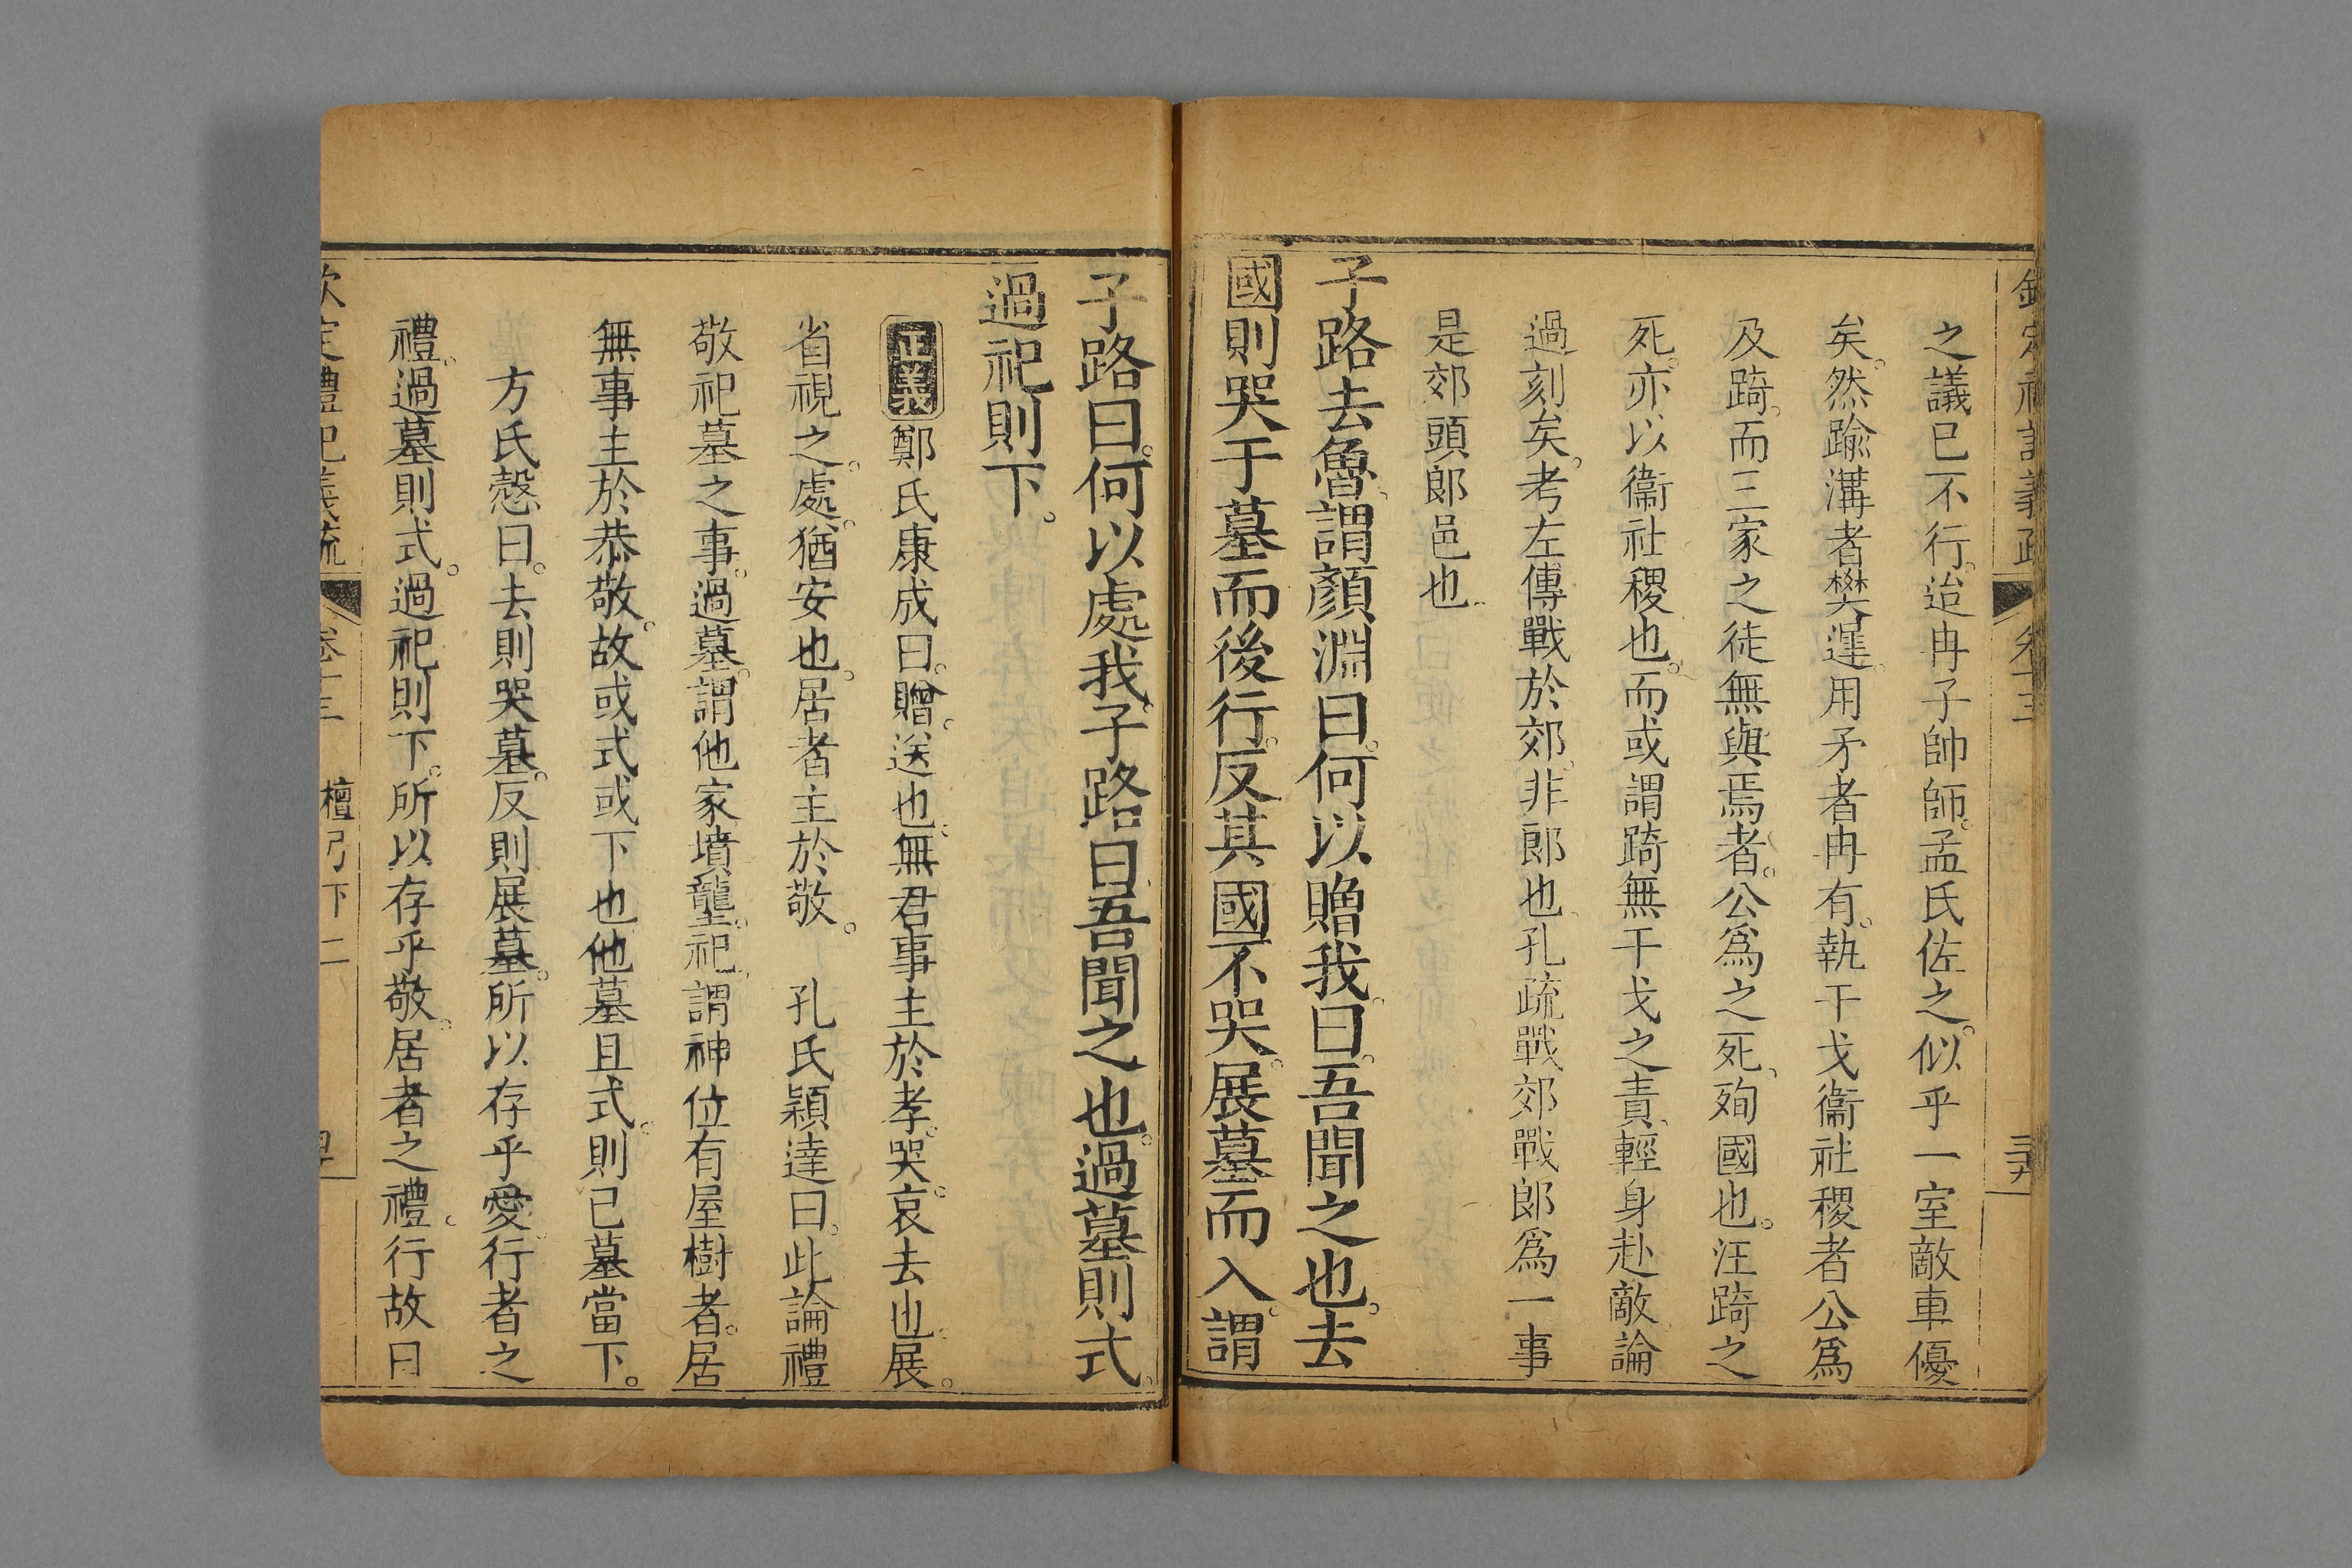 欽定禮記義疏 卷十三
之議已不行。迨冉子帥師。孟氏佐之。似乎一室敵車優
矣。然踰溝者樊遲。用矛者冉有。執干戈衞社稷者公爲
及踦。而三家之徒無與焉者。公爲之死、殉國也。汪踦之
死。亦以衞社稷也。而或謂踦無干戈之責、輕身赴敵、論
過刻矣。考左傳戰於郊。非郎也、孔疏戰郊戰郎爲一事
是郊頭郎邑也
子路去魯、謂顏淵曰。何以贈我。曰。吾聞之也。去
國則哭于墓而後行。反其國不哭。展墓而入。謂
子路曰。何以處我。子路曰、吾聞之也。過墓則式、
過祀則下。
正義 鄭氏康成曰。贈。送也。無君事主於孝。哭。哀去也。展。
省視之。處。猶安也。居者主於敬。 孔氏穎達曰。此論禮
敬祀墓之事。過墓。謂他家墳壟。祀。謂神位有屋樹者。居
無事主於恭敬。故或式或下也。他墓且式。則已墓當下。
方氏慤曰。去則哭墓。反則展墓。所以存乎愛。行者之
禮。過墓則式。過祀則下。所以存乎敬。居者之禮。行故曰
欽定禮記義疏 卷十三 檀弓下二